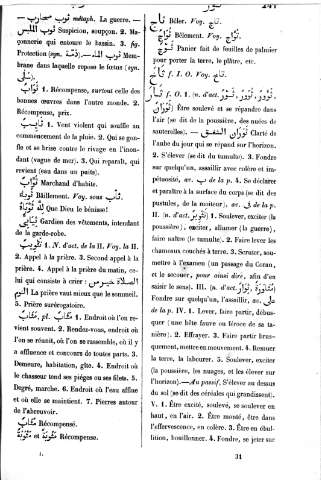 241
ثوب محارب — métaph. La guerre. —
ثوب الملبس Suspicion, soupçon. 2. Ma-
çonnerie qui entoure le bassin. 3. fig.
Protection (syn. ستر). — الماء Mem-
brane dans laquelle repose le fœtus (syn.
سلى).
ثواب 1. Récompense, surtout celle des
bonnes œuvres dans l'autre monde. 2.
Récompense, prix.
ثائب 1. Vent violent qui souffle au
commencement de la pluie. 2. Qui se gon-
fle et se brise contre le rivage en l'inon-
dant (vague de mer). 3. Qui reparaît, qui
revient (eau dans un puits).
ثواب Marchand d'habits.
Bâillement. Voy. sous ثأب.
Que Dieu le bénisse!
ثيابى Gardien des vêtements, intendant
de la garde-robe.
تثويب 1. N. d'act. de la II. Voy. la II.
2. Appel à la prière. 3. Second appel à la
prière. 4. Appel à la prière du matin, ce-
lui qui consiste à crier : الصلاة خير من
النوم La prière vaut mieux que le sommeil.
5. Prière surérogatoire.
مثاب, pl. مثاب 1. Endroit où l'on re-
vient souvent. 2. Rendez-vous, endroit où
l'on se réunit, où l'on se rassemble, où il y
a affluence et concours de toutes parts. 3.
Demeure, habitation, gîte. 4. Endroit où
le chasseur tend ses piéges ou ses filets. 5.
Degré, marche. 6. Endroit où l'eau afflue
et où elle se maintient. 7. Pierres autour
de l'abreuvoir.
مثاب Récompensé.
مثوبة et مثوبة Récompense.
I.
ثاج Bêler. Voy. ثأج.
ثواج Bêlement. Voy. ثؤاج.
Panier fait de feuilles de palmier
pour porter la terre, le plâtre, etc.
f. I. O. Voy. ثاخ.
ثار f. O. 1. (n. d'act. ثور, ثوور, ثوران,
ثور) Être soulevé et se répandre dans
l'air (se dit de la poussière, des nuées de
sauterelles). — ثوران الشفق Clarté de
l'aube du jour qui se répand sur l'horizon.
2. S'élever (se dit du tumulte). 3. Fondre
sur quelqu'un, assaillir avec colère et im-
pétuosité, av. ب de la p. 4. Se déclarer
et paraître à la surface du corps (se dit des
pustules, de la moiteur), av. ب de la p.
II. (n. d'act. تثوير) 1. Soulever, exciter (la
poussière); exciter, allumer (la guerre),
faire naître (le tumulte). 2. Faire lever les
chameaux couchés à terre. 3. Scruter, sou-
mettre à l'examen (un passage du Coran,
et le secouer, pour ainsi dire, afin d'en
saisir le sens). III. (n. d'act. مثاورة, ثوار)
Fondre sur quelqu'un, l'assaillir, ac.
de la p. IV. 1. Lever, faire partir, débus-
quer (une bête fauve ou féroce de sa ta-
nière). 2. Effrayer. 3. Faire partir brus-
quement, mettre en mouvement. 4. Remuer
la terre, la labourer. 5. Soulever, exciter
(la poussière, les nuages, et les élever sur
l'horizon). — Au passif, S'élever au dessus
du sol (se dit des céréales qui grandissent).
V. 1. Être excité, soulevé, se soulever en
haut, en l'air. 2. Être monté, être dans
l'effervescence, en colère. 3. Être en ébul-
lition, bouillonner. 4. Fondre, se jeter sur
31